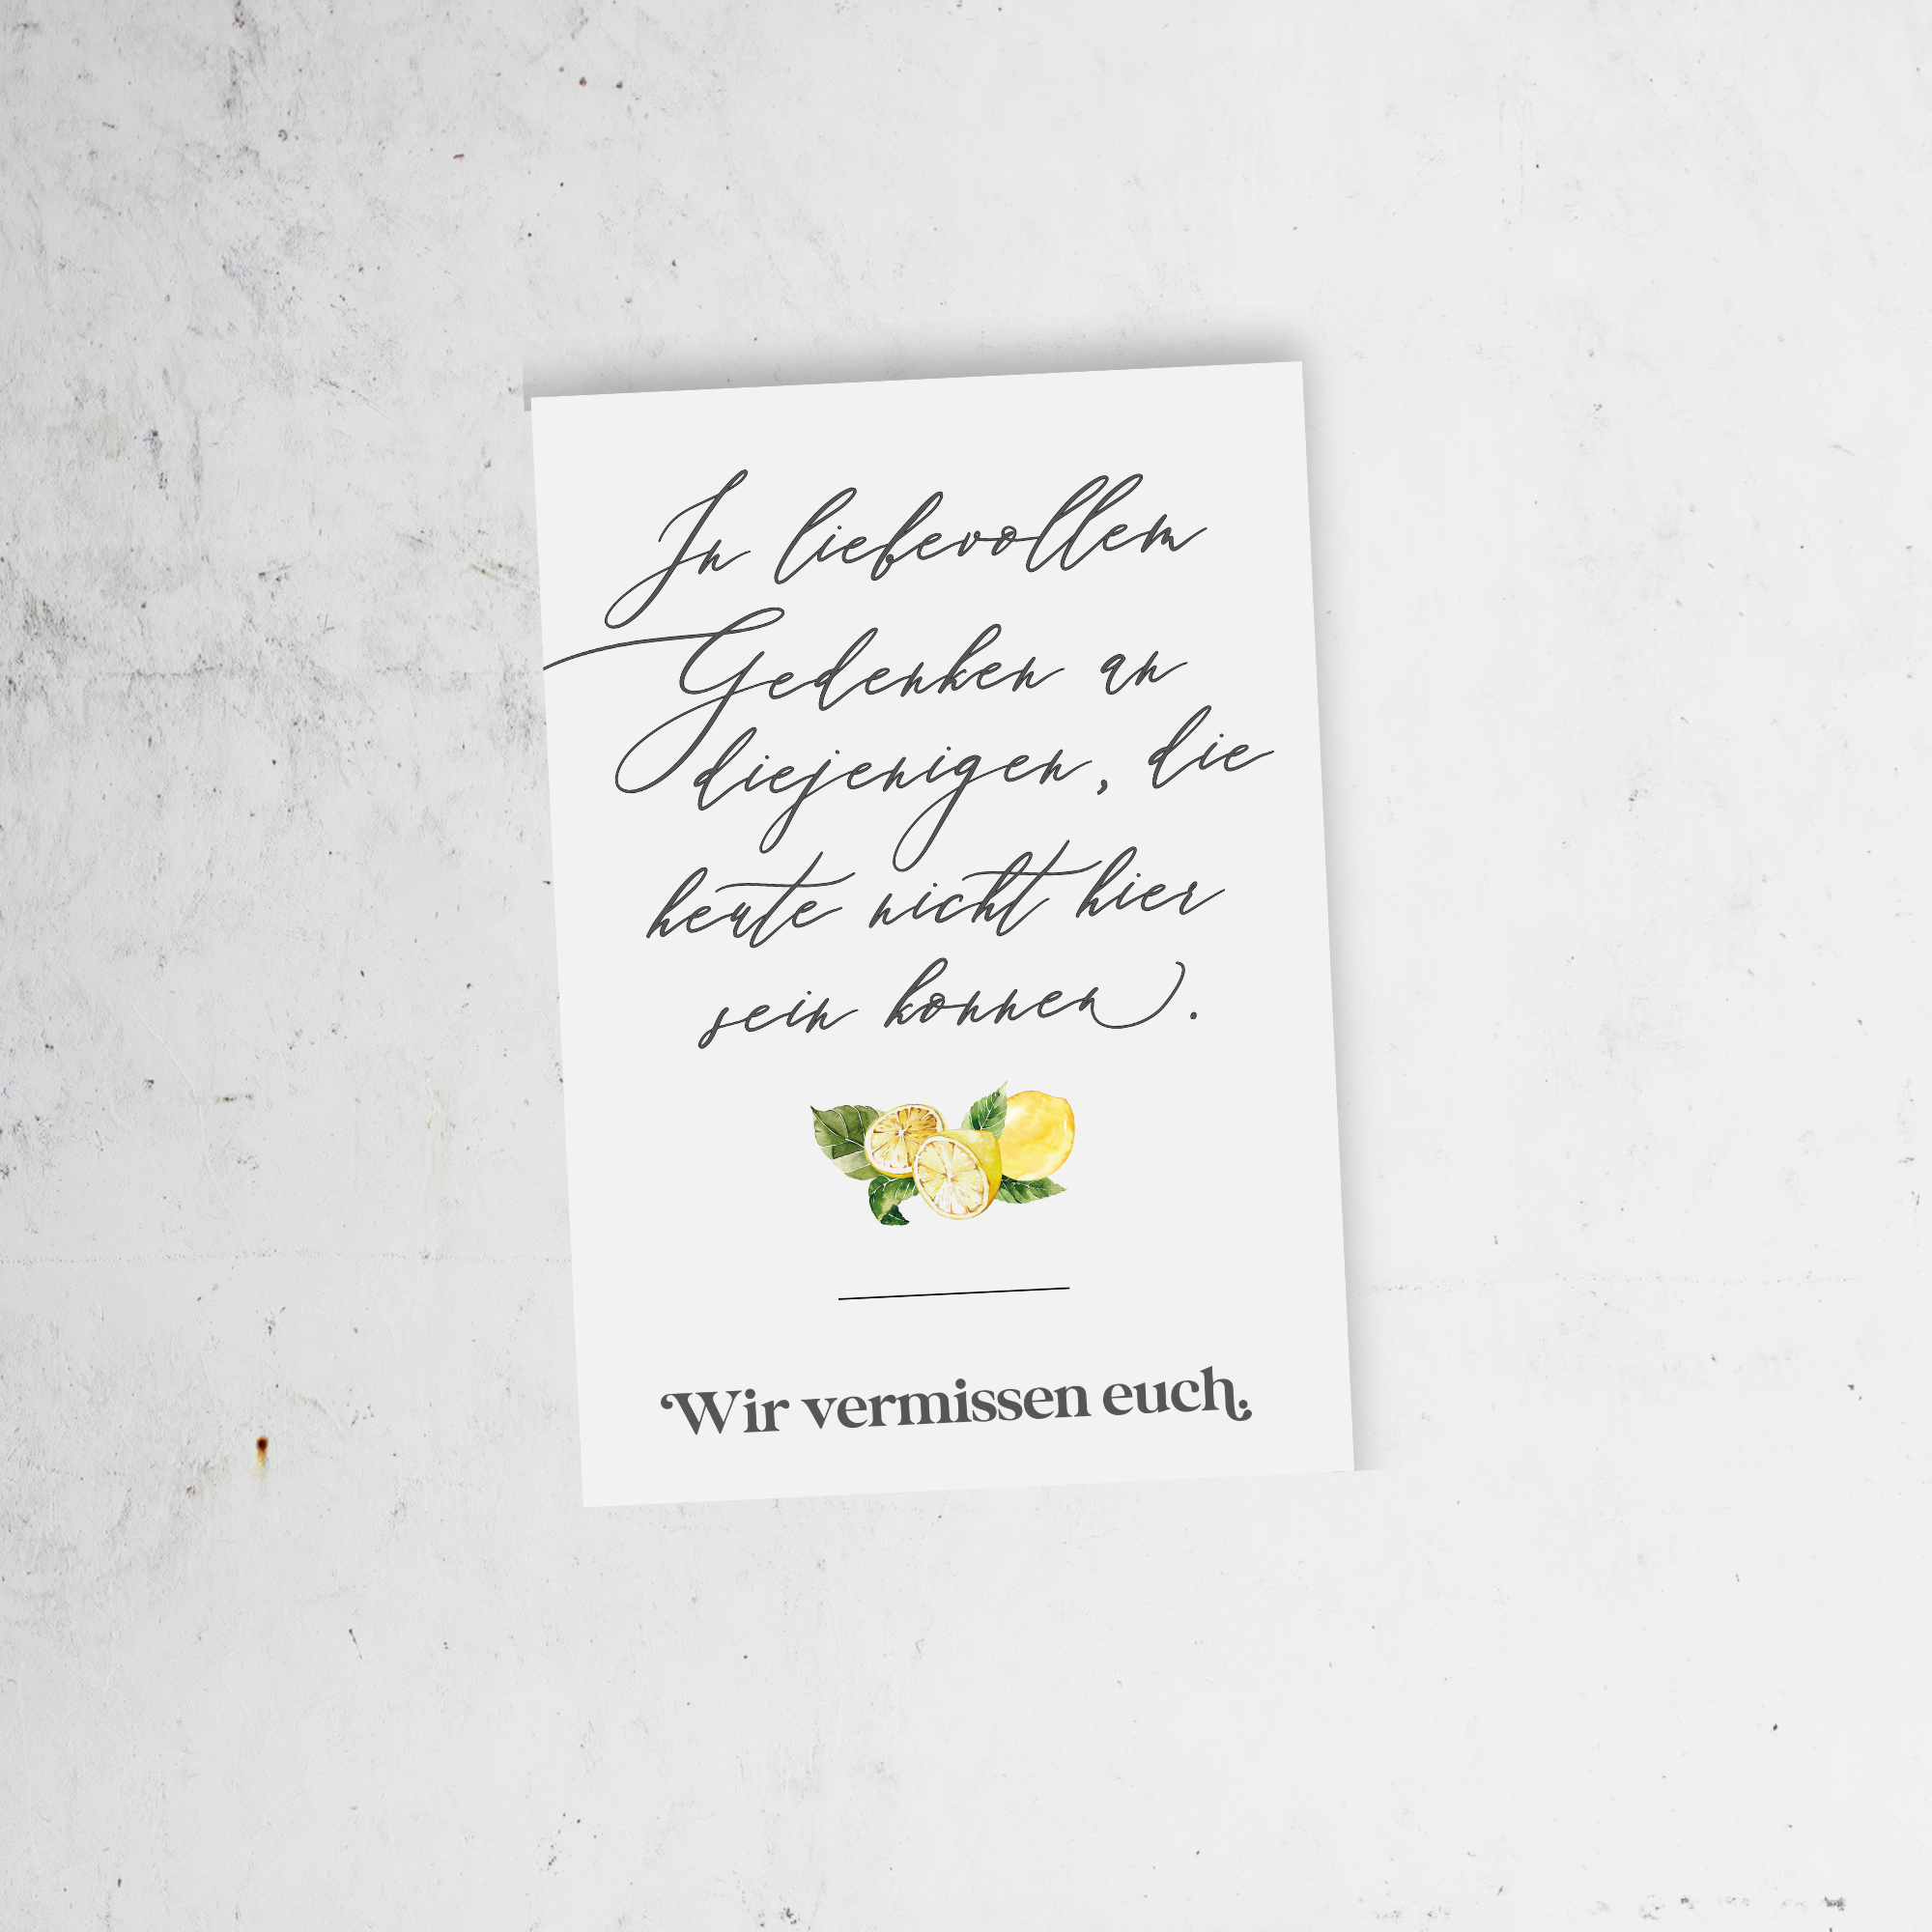 In liebevollem
Gedenken an
diejenigen, die
heute nicht hier
sein konnen.
Wir vermissen euch.